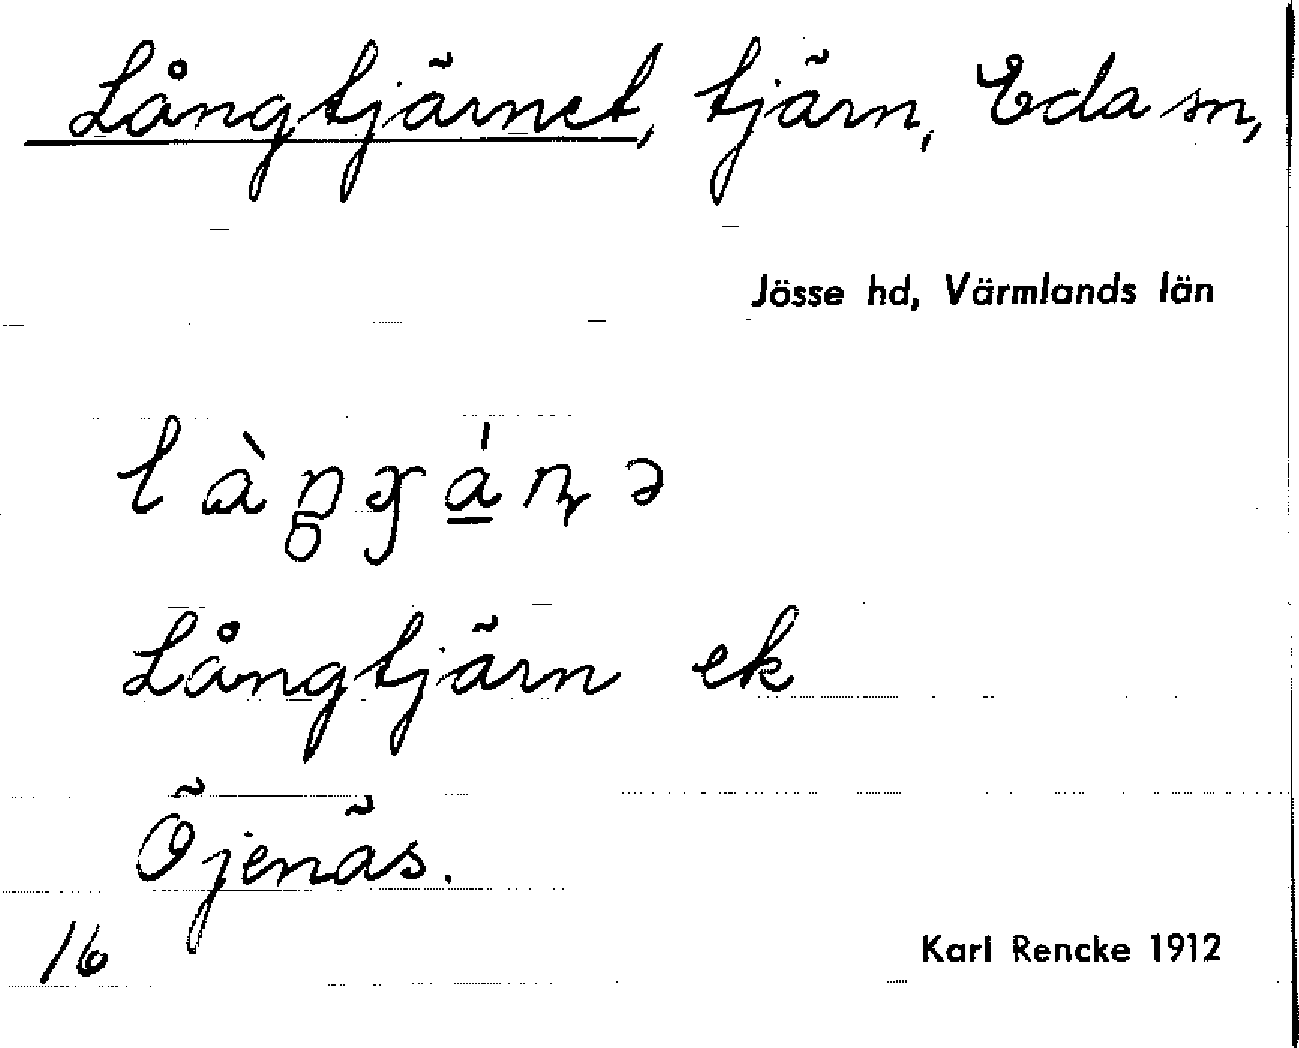 Långtjärnet, tjärn, Eda sn,
Jösse hd, Värmlands län
Långtjärn ek
Öjenäs.
16
Karl Rencke 1912